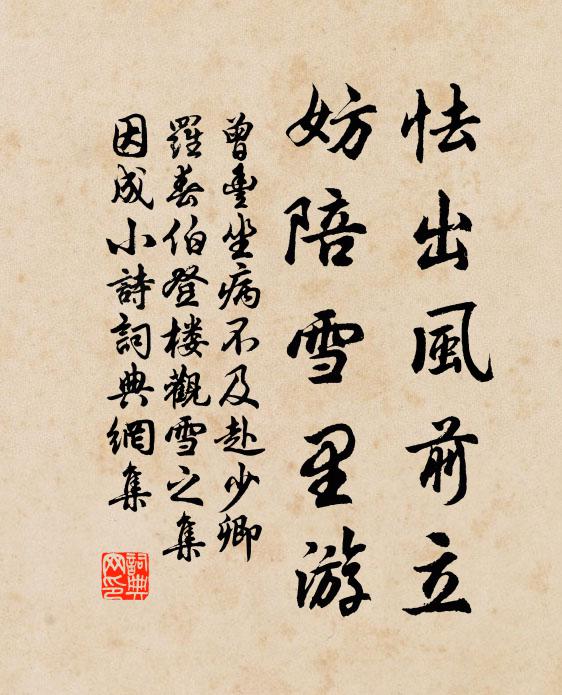 怯出風前立
妨陪雪里游
曾豐坐病不及赴少卿
羅春伯登樓觀雪之集
因成小詩詞典網集
詞典
网印